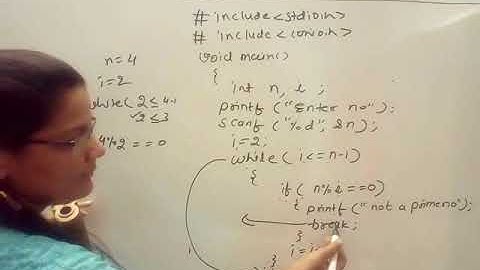 n=4
i=2
while( 2 ≤ 4-1
2 ≤ 3
4%2 == 0
# include <stdio.h>
# include <conio.h>
void main()
{
int n, i ;
printf ("Enter no");
scanf ("%d", &n);
i=2;
while( i<=n-1)
{
if( n%i==0)
{ printf ("not a primeno");
break;
}
}